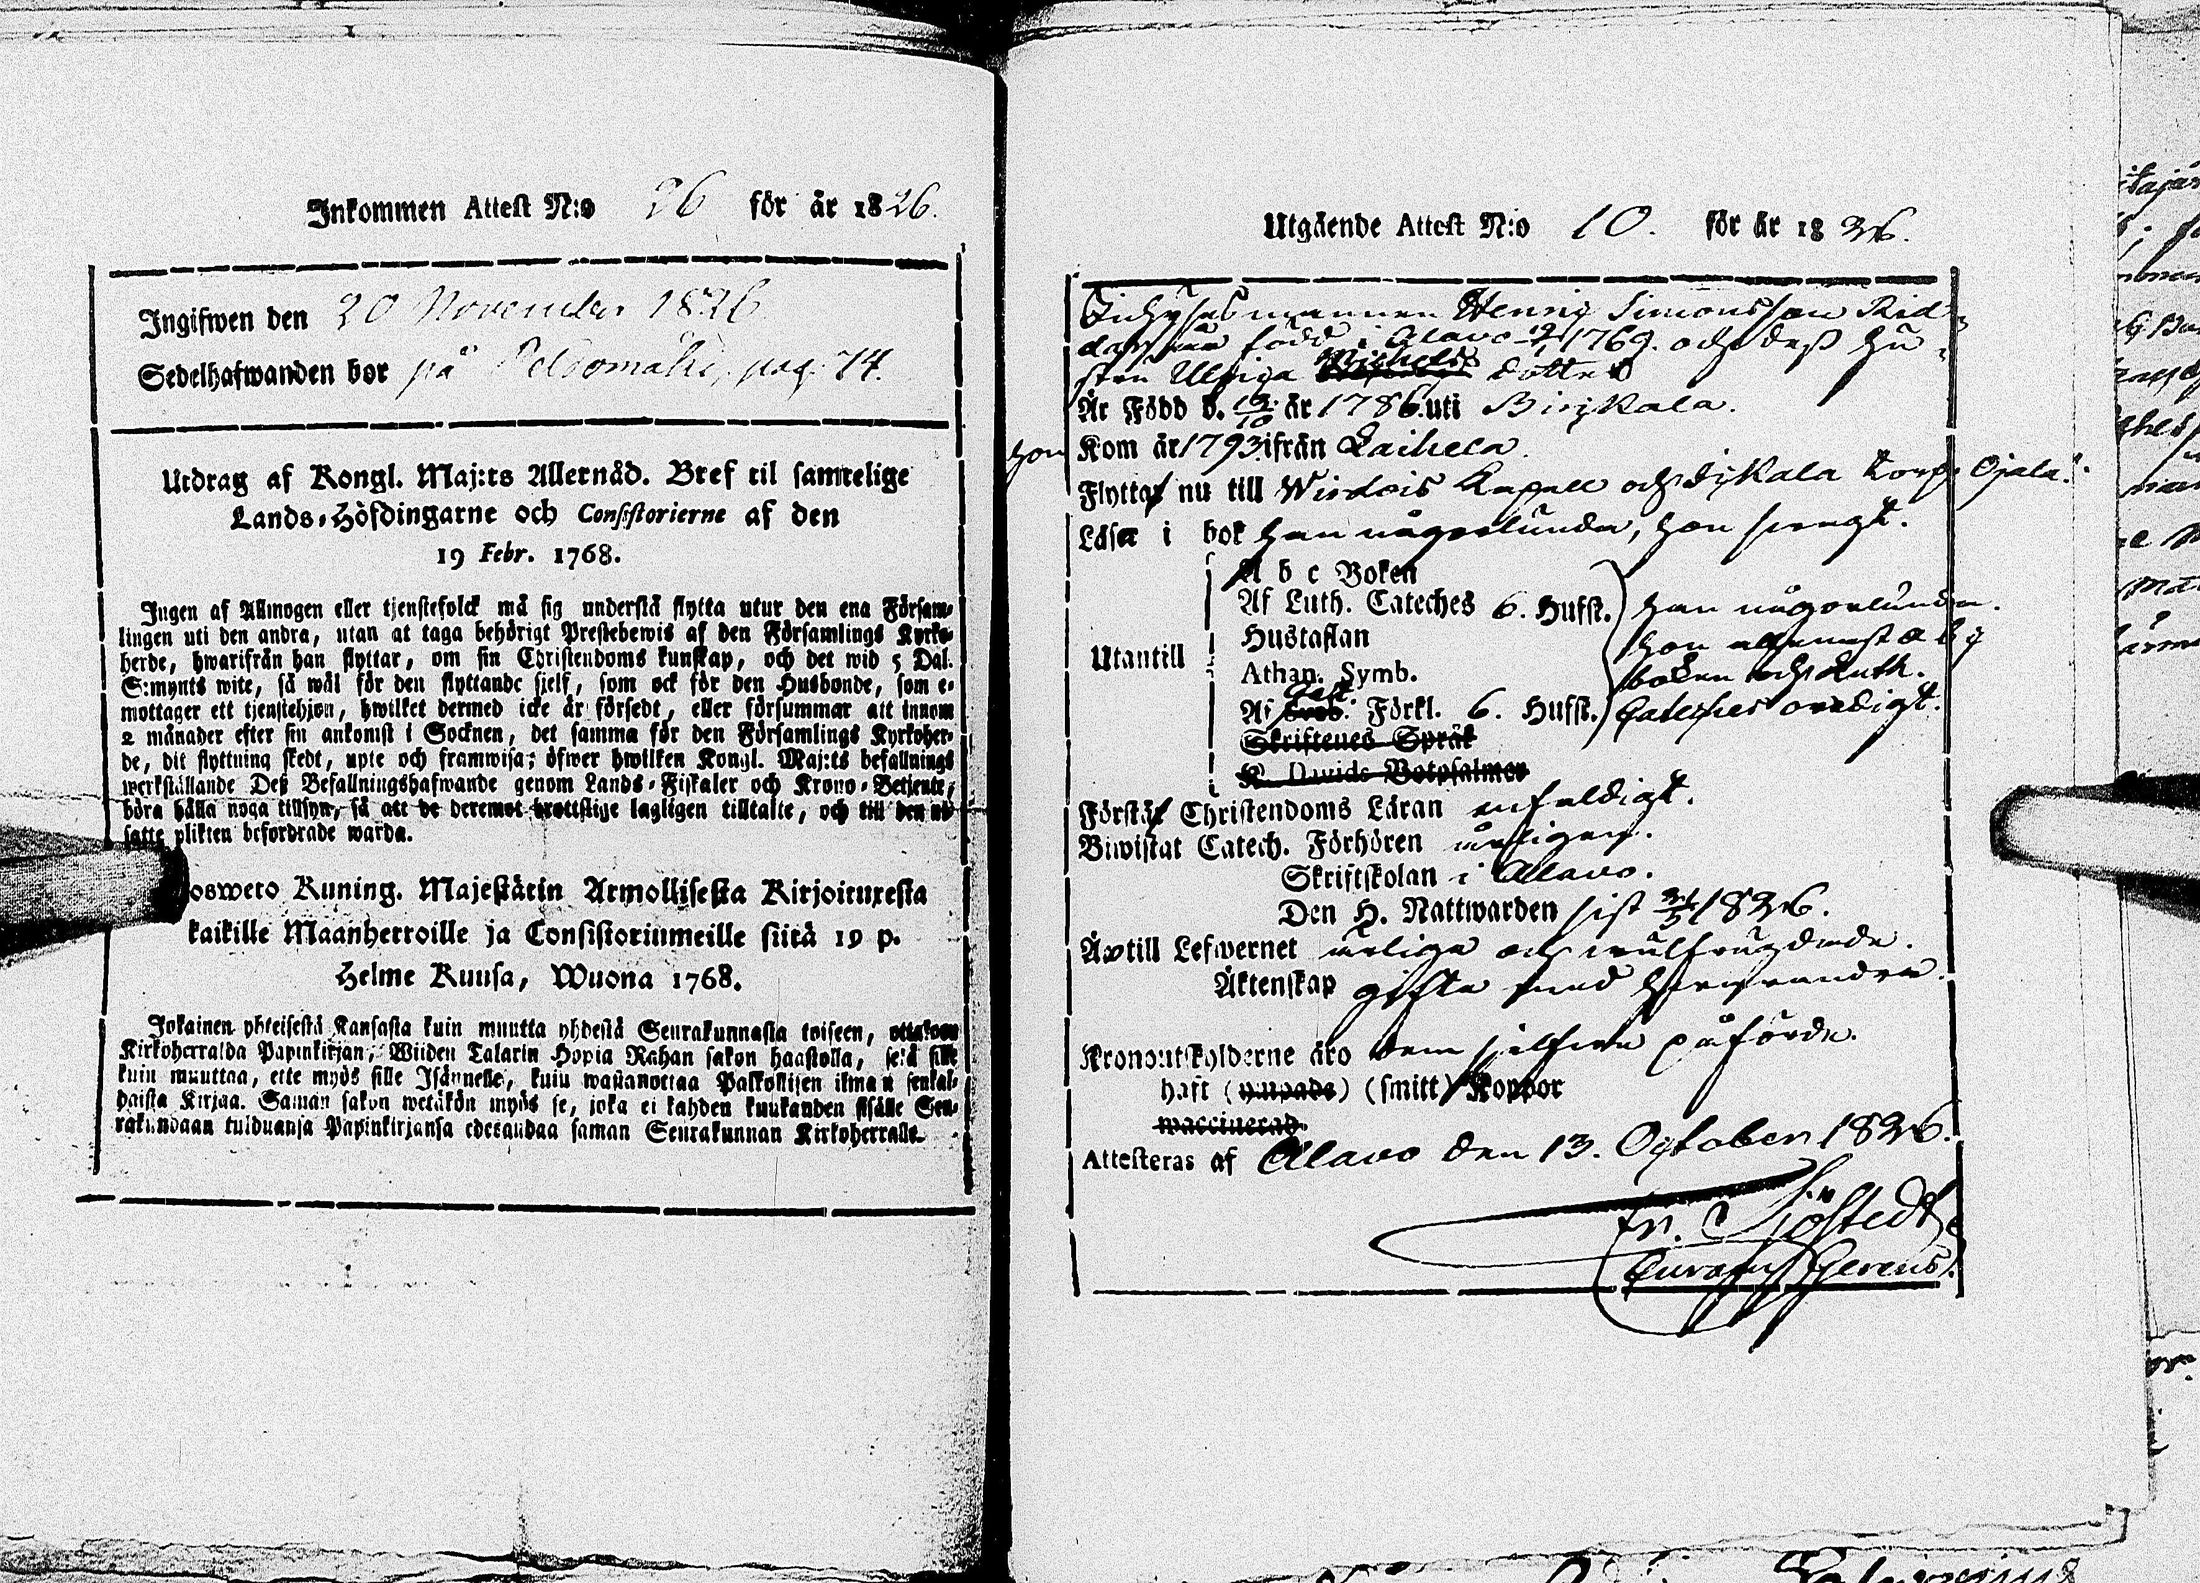 Inkommen Attest N:o 26 för år 1826.
Ingifwen den 20 November 1826
Sedelhafwanden bor på Peldomäki, pag. 74.
Utdrag af Kongl. Maj:ts Allernåd. Bref til samtelige
Lands-Höfdingarne och Consistorierne af den
19 Febr. 1768.
Ingen af Allmogen eller tjenstefolck må sig understå flytta utur den ena Försam-
lingen uti den andra, utan at taga behörigt Prestebewis af den Församlings Kyrko-
herde, hwarifrån han flyttar, om sin Christendoms kunskap, och det wid 5 Dal.
S:mynts wite, så wäl för den flyttande sjelf, som ock för den Husbonde, som e-
mottager ett tjenstehjon, hwilket dermed icke är försedt, eller försummar att innom
2 månader efter sin ankomst i Socknen, det samma för den Församlings Kyrkoher-
de, dit flyttning skedt, upte och framwisa; öfwer hwilken Kongl. Maj:ts befallnings
werkställande Deß Befallningshafwande genom Lands-Fiskaler och Krono-Betjente,
böra hålla noga tillsyn, så att de deremot brottslige lagligen tilltalte, och till den ut-
satte plikten befordrade warda.
osweto Kuning. Majestätin Armollisesta Kirjoituxesta
kaikille Maanherroille ja Consistoriumeille siitä 19 p.
Helme Kuusa, Wuona 1768.
Jokainen yhteisestä Kansasta kuin muutta yhdestä Seurakunnasta toiseen, ottakoon
Kirkoherralda Papinkirjan, Wiiden Talarin Hopia Rahan sakon haastolla, sekä sille
kuin muuttaa, ette myös sille Isännelle, kuin wastanottaa Palkollisen ilman senkal-
haista Kirjaa. Saman sakon wetäkön myös se, joka ei kahden kuukauden sisälle Seu-
rakundaan tulduansa Papinkirjansa edesandaa saman Seurakunnan Kirkoherralle.
Utgående Attest N:o 10. för år 1826.
Henric Simonsson Rid-
född i Alavo 1769. och deß hu-
stru Ulrica Michels dotter
Är Född d. 13/10 år 1786. uti Birkala.
hon Kom år 1793 ifrån Laihela.
Flytta nu till Wirdois Kapell och Torp Ojala.
Läser i bok han någorlunda, hon swagt.
Utantill
A b c Boken
Af Luth. Cateches 6. Hufst. han någorlunda.
Hustaflan hon allenast a b c
Athan. Symb. boken och Luth.
Af Förkl. 6. Hufst. Cateches oredigt.
Skriftenes Språk
K. Davids Botpsalmer
Förstå Christendoms Läran enfaldigt.
Biwistat Catech. Förhören årligen.
Skriftskolan i Alavo.
Den H. Nattwarden sist 1826.
Äro till Lefwernet ärliga och
Äktenskap gifta med hwarandra.
Kronoutskylderne äro dem sjelfwa påförde.
haft (ympade) (smitt) Koppor
waccinerad
Attesteras af Alavo den 13. October 1826.
Fr. Sjöstedt